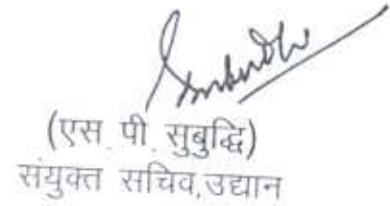 (एस. पी. सुबुद्धि)
संयुक्त सचिव,उद्यान